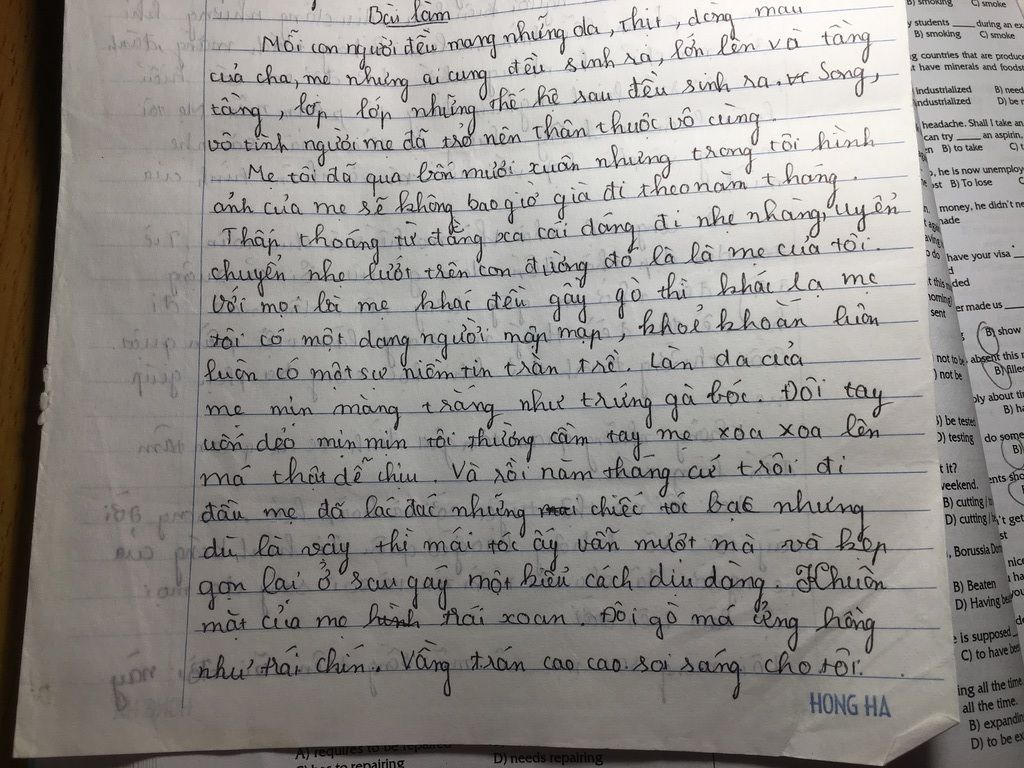 Bài làm
Mỗi con người đều mang những da, thịt, dòng máu
của cha, mẹ nhưng ai cung đều sinh ra, lớn lên và tầng
tầng, lớp lớp những thế hệ sau đều sinh ra. Song,
vô tình người mẹ đã trở nên thân thuộc vô cùng.
Mẹ tôi đã qua bốn mươi xuân nhưng trong tôi hình
ảnh của mẹ sẽ không bao giờ già đi theo năm tháng.
Thấp thoáng từ đằng xa cái dáng đi nhẹ nhàng, uyển
chuyển nhẹ lướt trên con đường đó là là mẹ của tôi.
Với mọi là mẹ khác đều gầy gò thì khác lạ mẹ
tôi có một dạng người mập mạp, khoẻ khoắn luôn
luôn có một sự niềm tin tràn trề. Làn da của
mẹ mịn màng trắng như trứng gà bóc. Đôi tay
uốn dẻo mịn mịn tôi thường cầm tay mẹ xoa xoa lên
má thật dễ chịu. Và rồi năm tháng cứ trôi đi
đầu mẹ đã lác đác những chiếc tóc bạc nhưng
dù là vậy thì mái tóc ấy vẫn mướt mà và kẹp
gọn lại ở sau gáy một kiểu cách dịu dàng. Khuôn
mặt của mẹ hình trái xoan. Đôi gò má ửng hồng
như trái chín. Vầng trán cao cao soi sáng cho tôi.
HONG HA
smoking C) smoke
students ____ during an ex
B) smoking C) smoke
countries that are produce
have minerals and foodst
industrialized B) need
industrialized D) be
headache. Shall I take an
can try ____ an aspirin,
B) to take
he is now unemploy
B) To lose
money, he didn't ne
have your visa
ded
er made us
B) show
absent this
not be B) fille
B) ha
D) testing do some
B)
it?
weekend.
B) cutting
D) cutting
, Borussia Do
B) Beaten
D) Having be
e is supposed
C) to have be
ing all the time
all the time.
B) expandin
D) to be ex
A) requires to be repaired
D) needs repairing
repairing